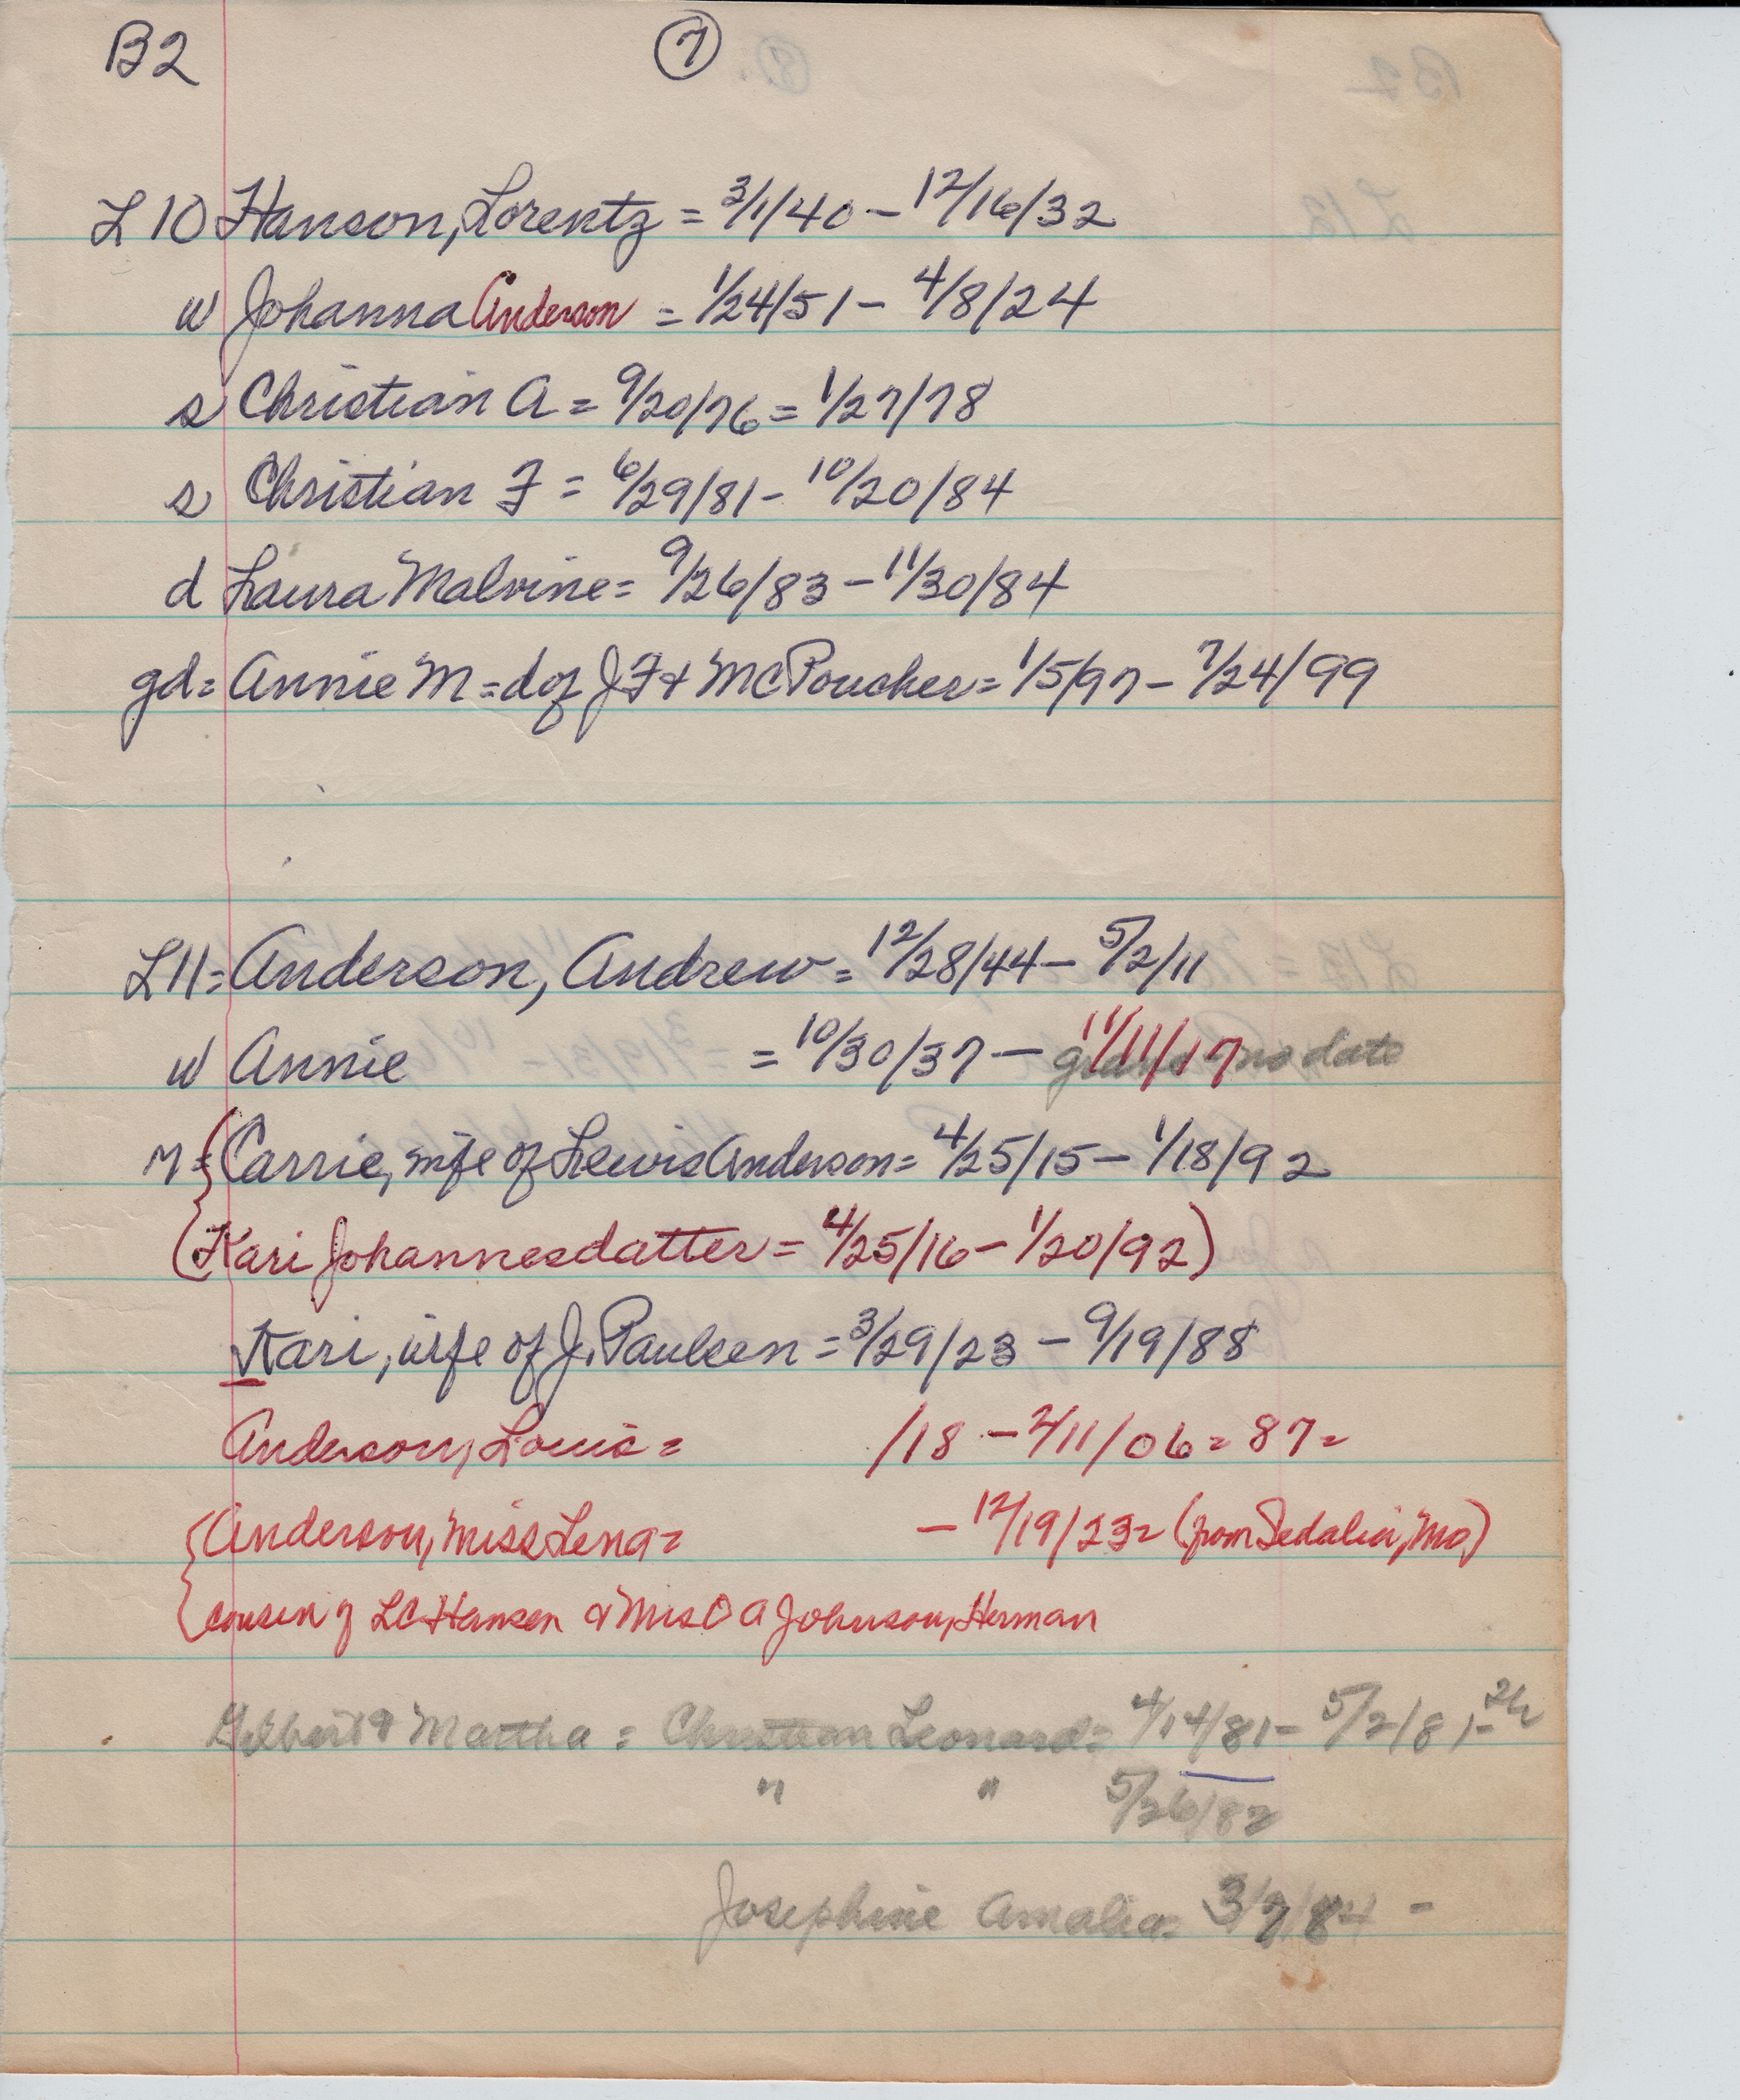 B2 7
L 10 Hanson, Lorentz = 3/1/40 – 12/16/32
w Johanna Anderson = 1/24/51 – 4/8/24
s Christian A = 9/20/76 = 1/27/78
s Christian F = 6/29/81 – 10/20/84
d Laura Malvine = 9/26/83 – 11/30/84
gd = Annie M = d of J F + M C Poucher = 1/5/97 – 7/24/99
L11 = Anderson, Andrew = 12/28/44 – 5/2/11
w Annie = 10/30/37 – 11/11/17 no date
m = { Carrie, wife of Lewis Anderson = 4/25/15 – 1/18/92
(Kari Johannesdatter = 4/25/16 – 1/20/92)
Kari, wife of J. Paulsen = 3/29/23 – 9/19/88
Anderson, Louis = /18 – 2/11/06 = 87 =
{ Anderson, Miss Lena = – 12/19/23 = (from Sedalia, Mo)
cousin of L C Hansen & Mrs O A Johnson, Herman
Gilbert & Martha = Christian Leonard = 4/14/81 – 5/2/81 –
" " 5/26/82
Josephine Amalia = 3/7/84 –